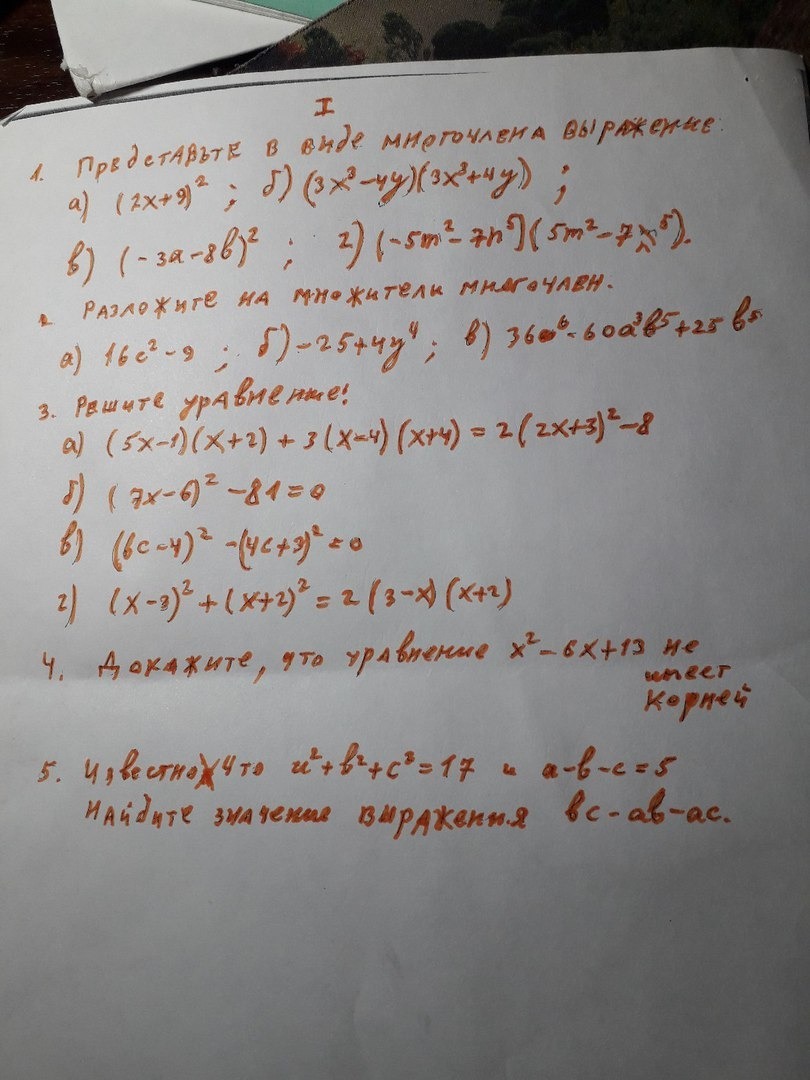 I
1. Представьте в виде многочлена выражение:
а) (2x+9)²; б) (3x³-4y)(3x³+4y);
в) (-3a-8b)²; г) (-5m²-7n⁵)(5m²-7n⁵).
2 Разложите на множители многочлен.
а) 16c²-9; б) -25+4y⁴; в) 36a⁶-60a³b⁵+25b⁵
3. Решите уравнение!
а) (5x-1)(x+2)+3(x-4)(x+4)=2(2x+3)²-8
б) (7x-6)²-81=0
в) (6c-4)²-(4c+3)²=0
г) (x-3)²+(x+2)²=2(3-x)(x+2)
4. Докажите, что уравнение x²-6x+13 не
имеет
корней
5. Известно что a²+b²+c²=17 и a-b-c=5
Найдите значение выражения bc-ab-ac.